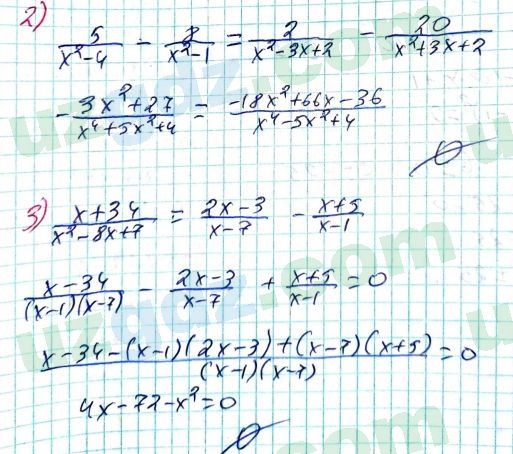 2)
5/(x²-4) - 8/(x²-1) = 2/(x²-3x+2) - 20/(x²+3x+2)
-(3x²+27)/(x⁴+5x²+4) = (-18x²+66x-36)/(x⁴-5x²+4)
∅
3) (x+34)/(x²-8x+7) = (2x-3)/(x-7) - (x+5)/(x-1)
(x-34)/((x-1)(x-7)) - (2x-3)/(x-7) + (x+5)/(x-1) = 0
(x-34-(x-1)(2x-3)+(x-7)(x+5))/((x-1)(x-7)) = 0
4x-72-x²=0
∅